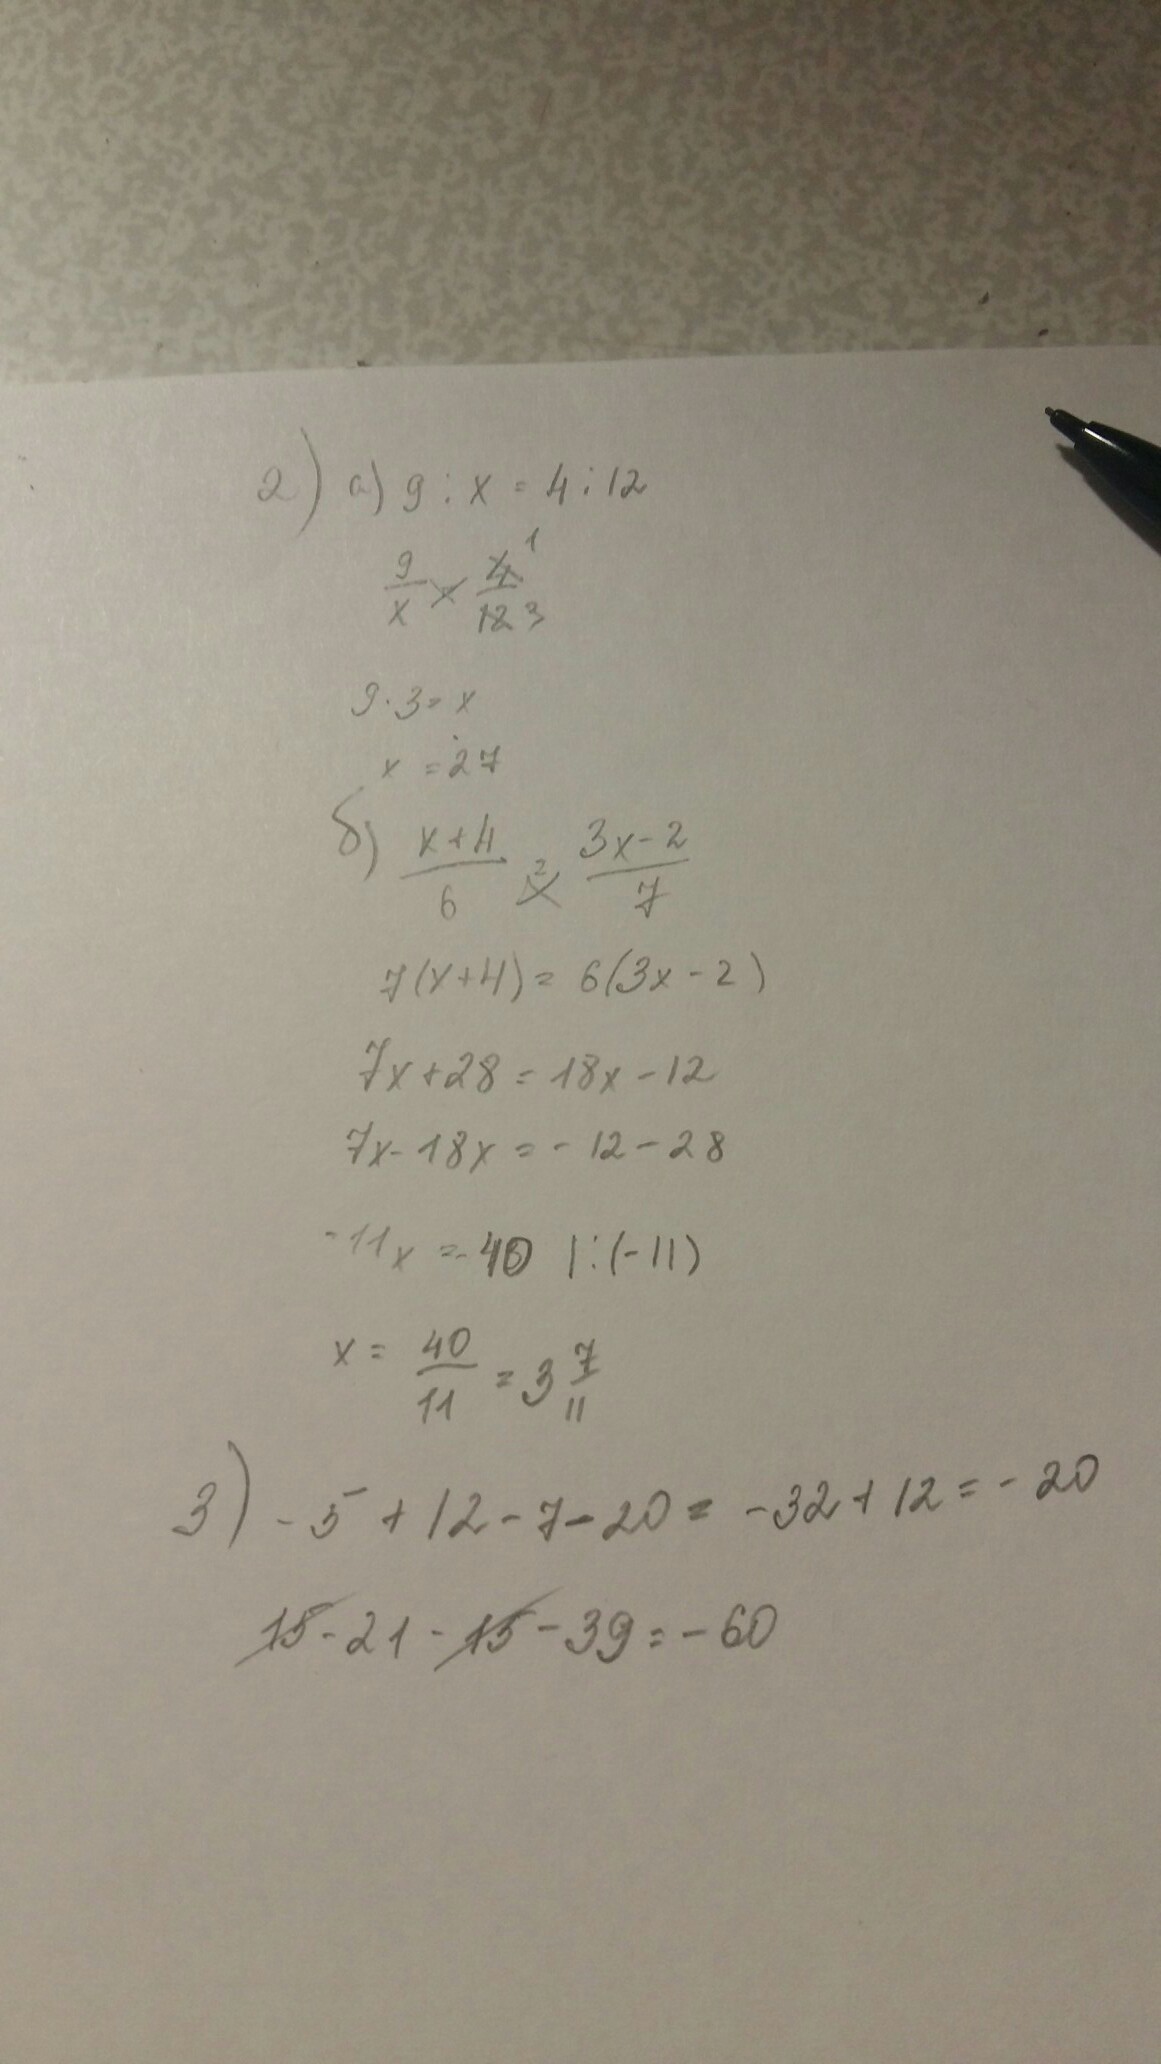 2) а) 9 : x = 4 : 12
9/x × 4/12 1 3
9 · 3 = x
x = 27
б) x+4/6 = 3x-2/7
7(x+4) = 6(3x-2)
7x+28 = 18x-12
7x-18x = -12-28
-11x = -40 |:(-11)
x = 40/11 = 3 7/11
3) -5+12-7-20 = -32+12 = -20
15-21-15-39 = -60